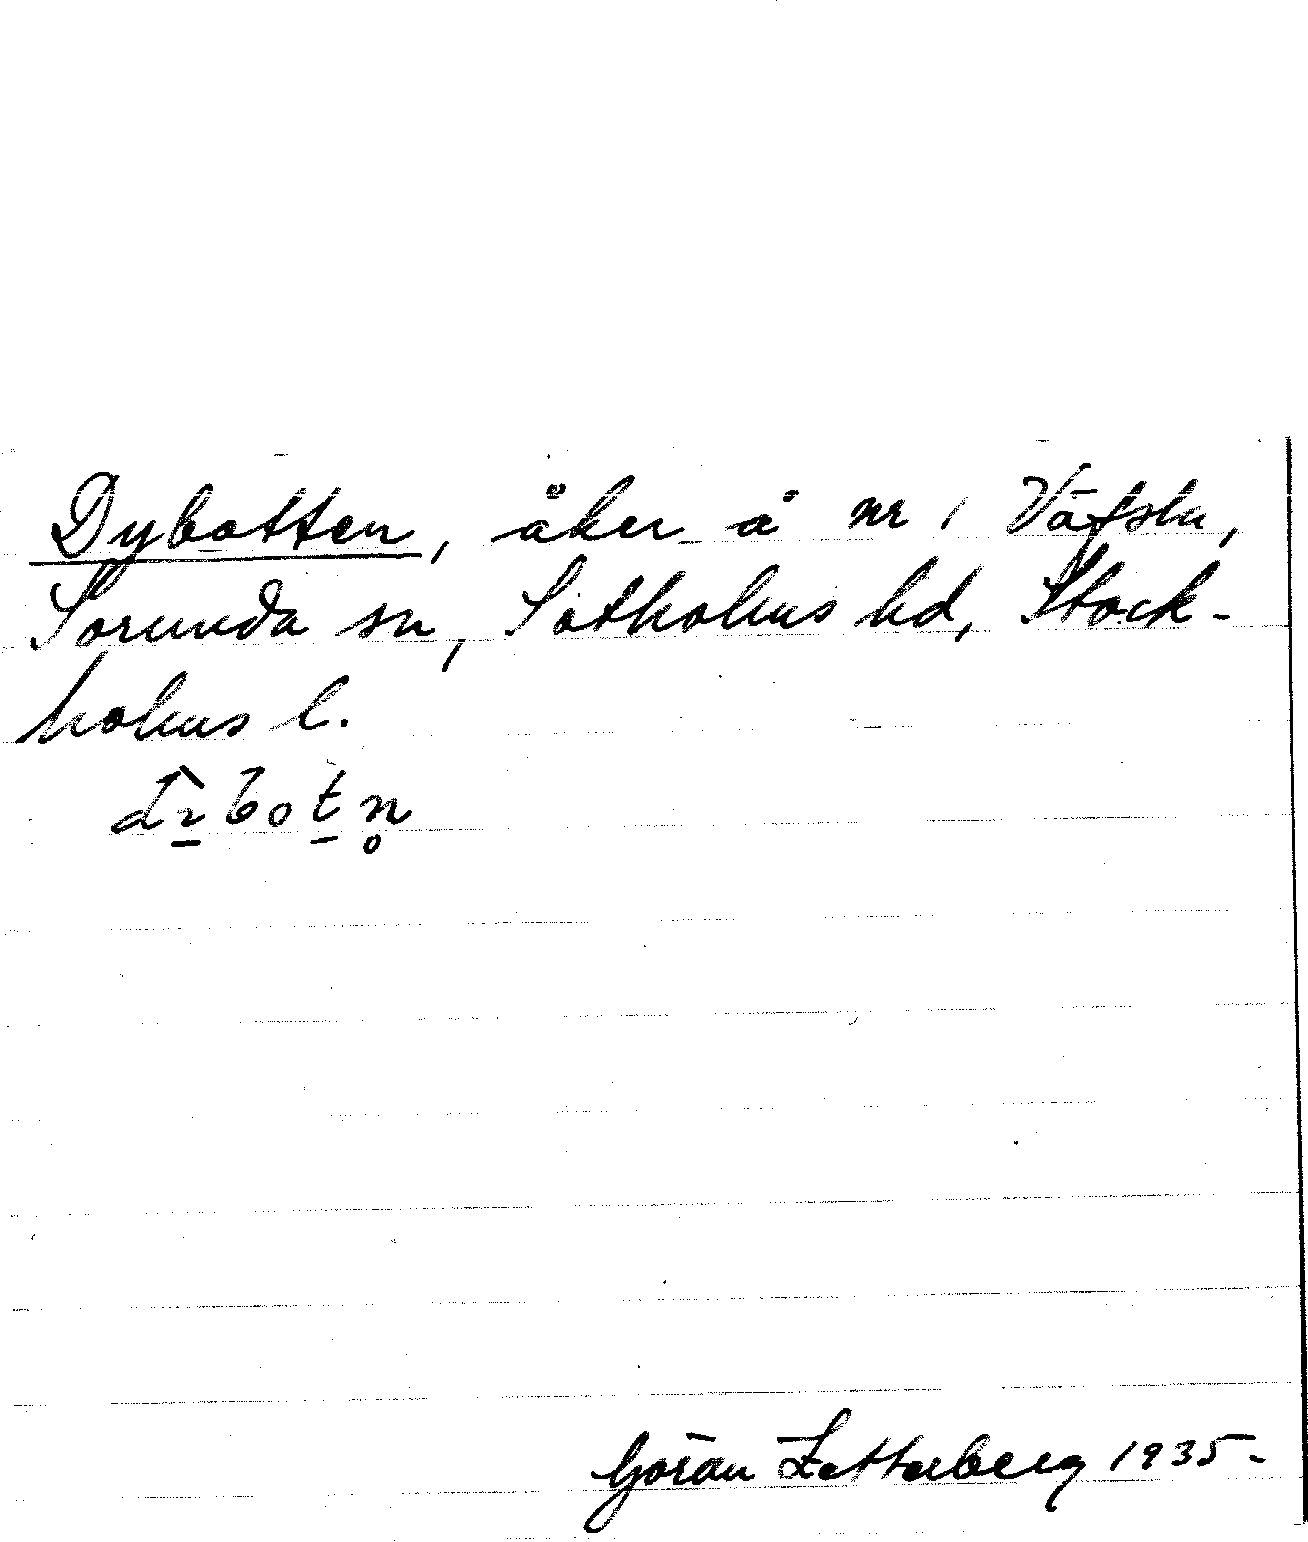 Dybotten, åker å nr 1 Väfsta,
Sorunda sn, Sotholms hd, Stock-
holms l.
Göran Zetterberg 1935.